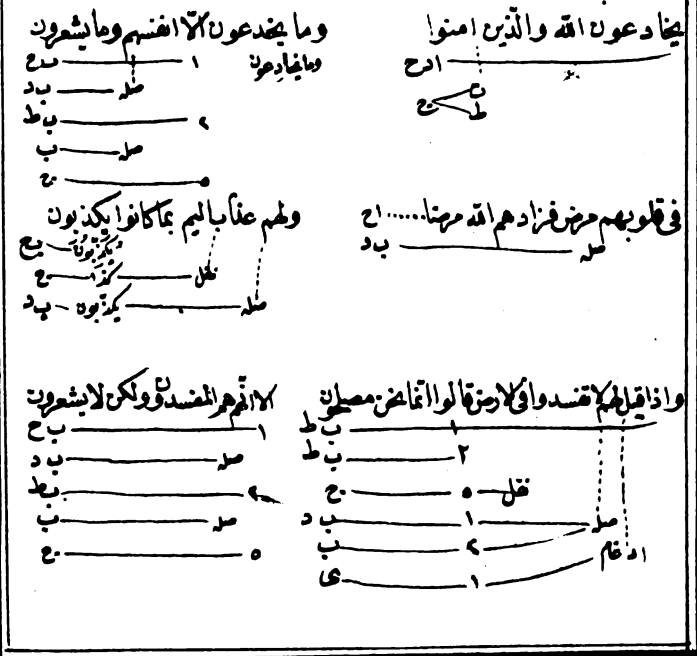 يخادعون الله والذين امنوا
ادح
ب
ط
ج
وما يخدعون الا انفسهم وما يشعرون
وما يخادعون ١ بدح
صله بد
٢ بط
صله ب
٥ ج
فى قلوبهم مرض فزادهم الله مرضا...... اح
صله بد
ولهم عذاب اليم بما كانوا يكذبون
يكذبون
نقل ج
صله يكذبون بد
واذا قيل لهم لا تفسدوا فى الارض قالوا انما نحن مصلحون
١ ب ط
٢ ب ط
نقل ٥ ج
صله ١ ب د
٢ ب
ادغام ١ ى
الا انهم هم المفسدون ولكن لا يشعرون
١ ب ح
صله ب د
٢ بط
صله ب
٥ ج